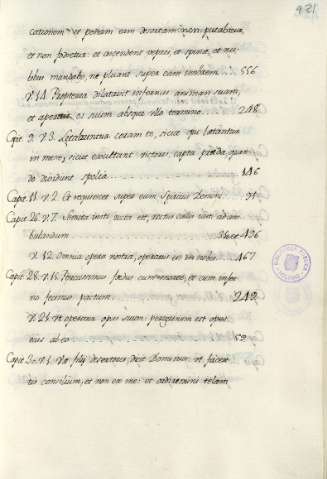 et non fodietur: et ascendent vepres, et spinæ, et nu-
bibus mandabo, ne pluant super eam imbrem. 556
V. 14. Propterea dilatavit infernus animam suam,
et aperuit os suum absque ullo termino... 248
Cap. 9. V. 3. Lætabuntur coram te, sicut qui lætantur
in messe, sicut exultant victores, capta præda, quan-
do dividunt spolia... 446
Cap. 11. V. 2. Et requiescet super eum Spiritus Domini. 91
Cap. 26. V. 7. Semita iusti recta est, rectus callis iusti ad am-
bulandum
V. 12. Omnia opera nostra, operatus es in nobis. 467
Cap. 28. V. 15. Percussimus fœdus cum morte, et cum infer-
no fecimus pactum. 249
opus suum, peregrinum est opus
eius ab eo... 59
Cap. 30. V. 1. Væ filij desertores dicit Dominus, ut facere-
tis consilium, et non ex me: et ordiremini telam